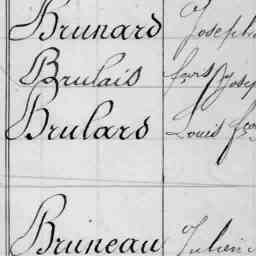 Brunard Joseph
Brulais fçois Josep
Brulard Louis fço
Bruneau Julien